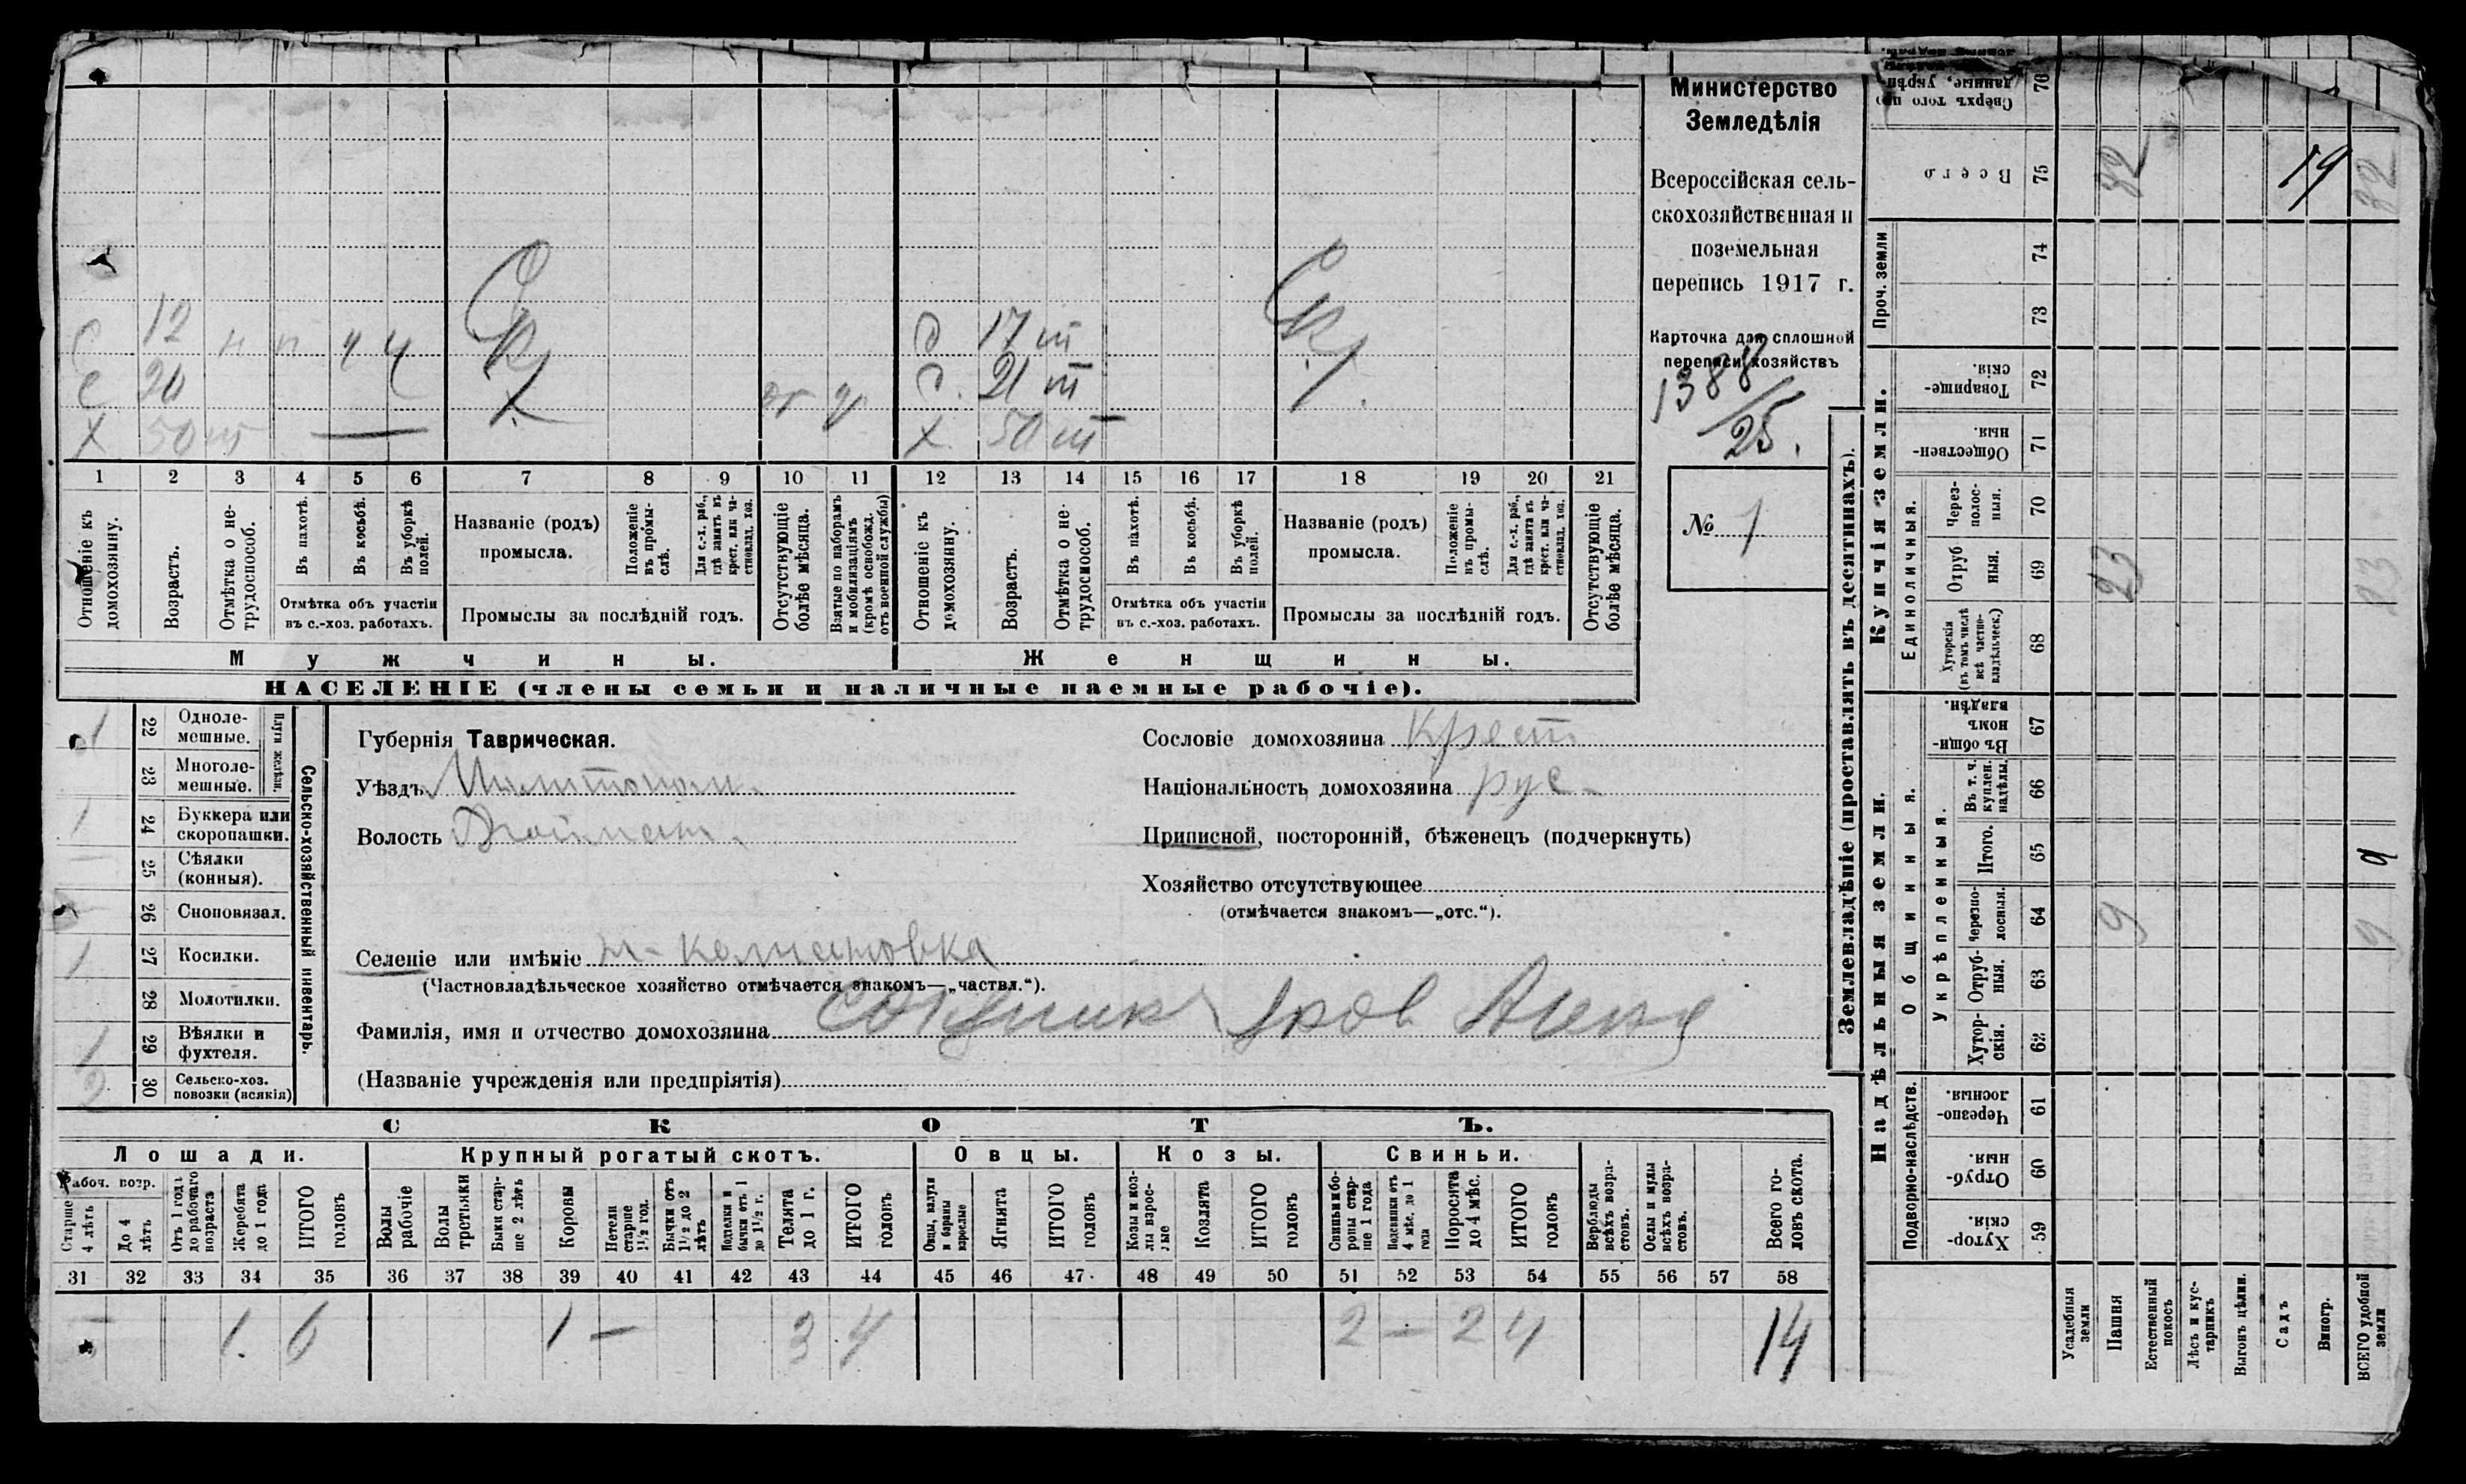 Министерство
Земледѣлія
Всероссійская сель-
скохозяйственная и
поземельная
перепись 1917 г.
Карточка для сплошной
переписи хозяйствъ
1388/25.
№ 1
С 12 н п ч ч
С 20
Х 50 ш —
Д 17 ш
Д. 21 ш
Х 50 ш
1 2 3 4 5 6 7 8 9 10 11 12 13 14 15 16 17 18 19 20 21
Отношеніе къ домохозяину.
Возрастъ.
Отмѣтка о не-трудоспособ.
Въ пахотѣ.
Въ косьбѣ.
Въ уборкѣ полей.
Отмѣтка объ участіи
въ с.-хоз. работахъ.
Названіе (родъ)
промысла.
Положеніе въ промы-слѣ.
Для с.-х. раб., гдѣ занятъ въ крест. или ча-стновлад. хоз.
Промыслы за послѣдній годъ.
Отсутствующіе болѣе мѣсяца.
Взятые по наборамъ и мобилизаціямъ (кромѣ освобожд. отъ военной службы)
Отношеніе къ домохозяину.
Возрастъ.
Отмѣтка о не-трудоспособ.
Въ пахотѣ.
Въ косьбѣ.
Въ уборкѣ полей.
Отмѣтка объ участіи
въ с.-хоз. работахъ.
Названіе (родъ)
промысла.
Положеніе въ промы-слѣ.
Для с.-х. раб., гдѣ занята въ крест. или ча-стновлад. хоз.
Промыслы за послѣдній годъ.
Отсутствующіе болѣе мѣсяца.
Мужчины.
Женщины.
НАСЕЛЕНІЕ (члены семьи и наличные наемные рабочіе).
Сельско-хозяйственный инвентарь.
Плуги желѣзн.
1 22 Одноле-мешные.
23 Многоле-мешные.
1 24 Буккера или скоропашки.
— 25 Сѣялки (конныя).
26 Сноповязал.
1 27 Косилки.
28 Молотилки.
1 29 Вѣялки и фухтеля.
2 30 Сельско-хоз. повозки (всякія)
Губернія Таврическая.
Уѣздъ
Волость
Селеніе или имѣніе
(Частновладѣльческое хозяйство отмѣчается знакомъ—„частвл.“).
Фамилія, имя и отчество домохозяина
(Названіе учрежденія или предпріятія)
Сословіе домохозяина Крест
Національность домохозяина рус.
Приписной, посторонній, бѣженецъ (подчеркнуть)
Хозяйство отсутствующее
(отмѣчается знакомъ—„отс.“).
СКОТЪ.
Лошади. Крупный рогатый скотъ. Овцы. Козы. Свиньи.
Рабоч. возр.
Старше 4 лѣтъ
До 4 лѣтъ
Отъ 1 года до рабочаго возраста
Жеребята до 1 года
ИТОГО головъ
Волы рабочіе
Волы третьяки
Быки стар-ше 2 лѣтъ
Коровы
Нетели старше 1½ год.
Бычки отъ 1½ до 2 лѣтъ
Подтелки и бычки отъ 1 до 1½ г.
Телята до 1 г.
ИТОГО головъ
Овцы, валухи и бараны взрослые
Ягнята
ИТОГО головъ
Козы и коз-лы взрос-лые
Козлята
ИТОГО головъ
Свиньи и бо-ровы стар-ше 1 года
Подсвинки отъ 4 мѣс. до 1 года
Поросята до 4 мѣс.
ИТОГО головъ
Верблюды всѣхъ возра-стовъ.
Ослы и мулы всѣхъ возра-стовъ.
Всего го-ловъ скота.
31 32 33 34 35 36 37 38 39 40 41 42 43 44 45 46 47 48 49 50 51 52 53 54 55 56 57 58
5 1. 6 1 — 3 4 2 — 2 4 14
Землевладѣніе (проставлять въ десятинахъ).
Купчія земли.
Надѣльныя земли.
Проч. земли
Единоличныя.
Общинныя.
Укрѣпленныя.
Подворно-наслѣдств.
Сверхъ того про данные, укрѣп- 76
Всего 75 32 19 32
74
73
Товарище-скія. 72
Обществен-ныя. 71
Через-полос-ныя. 70
Отруб ныя. 69 23
Хуторскія (въ томъ числѣ всѣ частно-владѣльческ.) 68
Въ общин-номъ владѣн. 67
Въ т. ч. куплен. надѣлы. 66
Итого. 65 9
Черезпо-лосныя. 64 9 9
Отруб-ныя. 63
Хутор-скія. 62
Черезпо-лосныя. 61
Отруб-ныя. 60
Хутор-скія. 59
Усадебныя земли
Пашня
Естественный покосъ
Лѣсъ и кус-тарникъ
Выгонъ цѣлин.
Садъ
Виногр.
ВСЕГО удобной земли